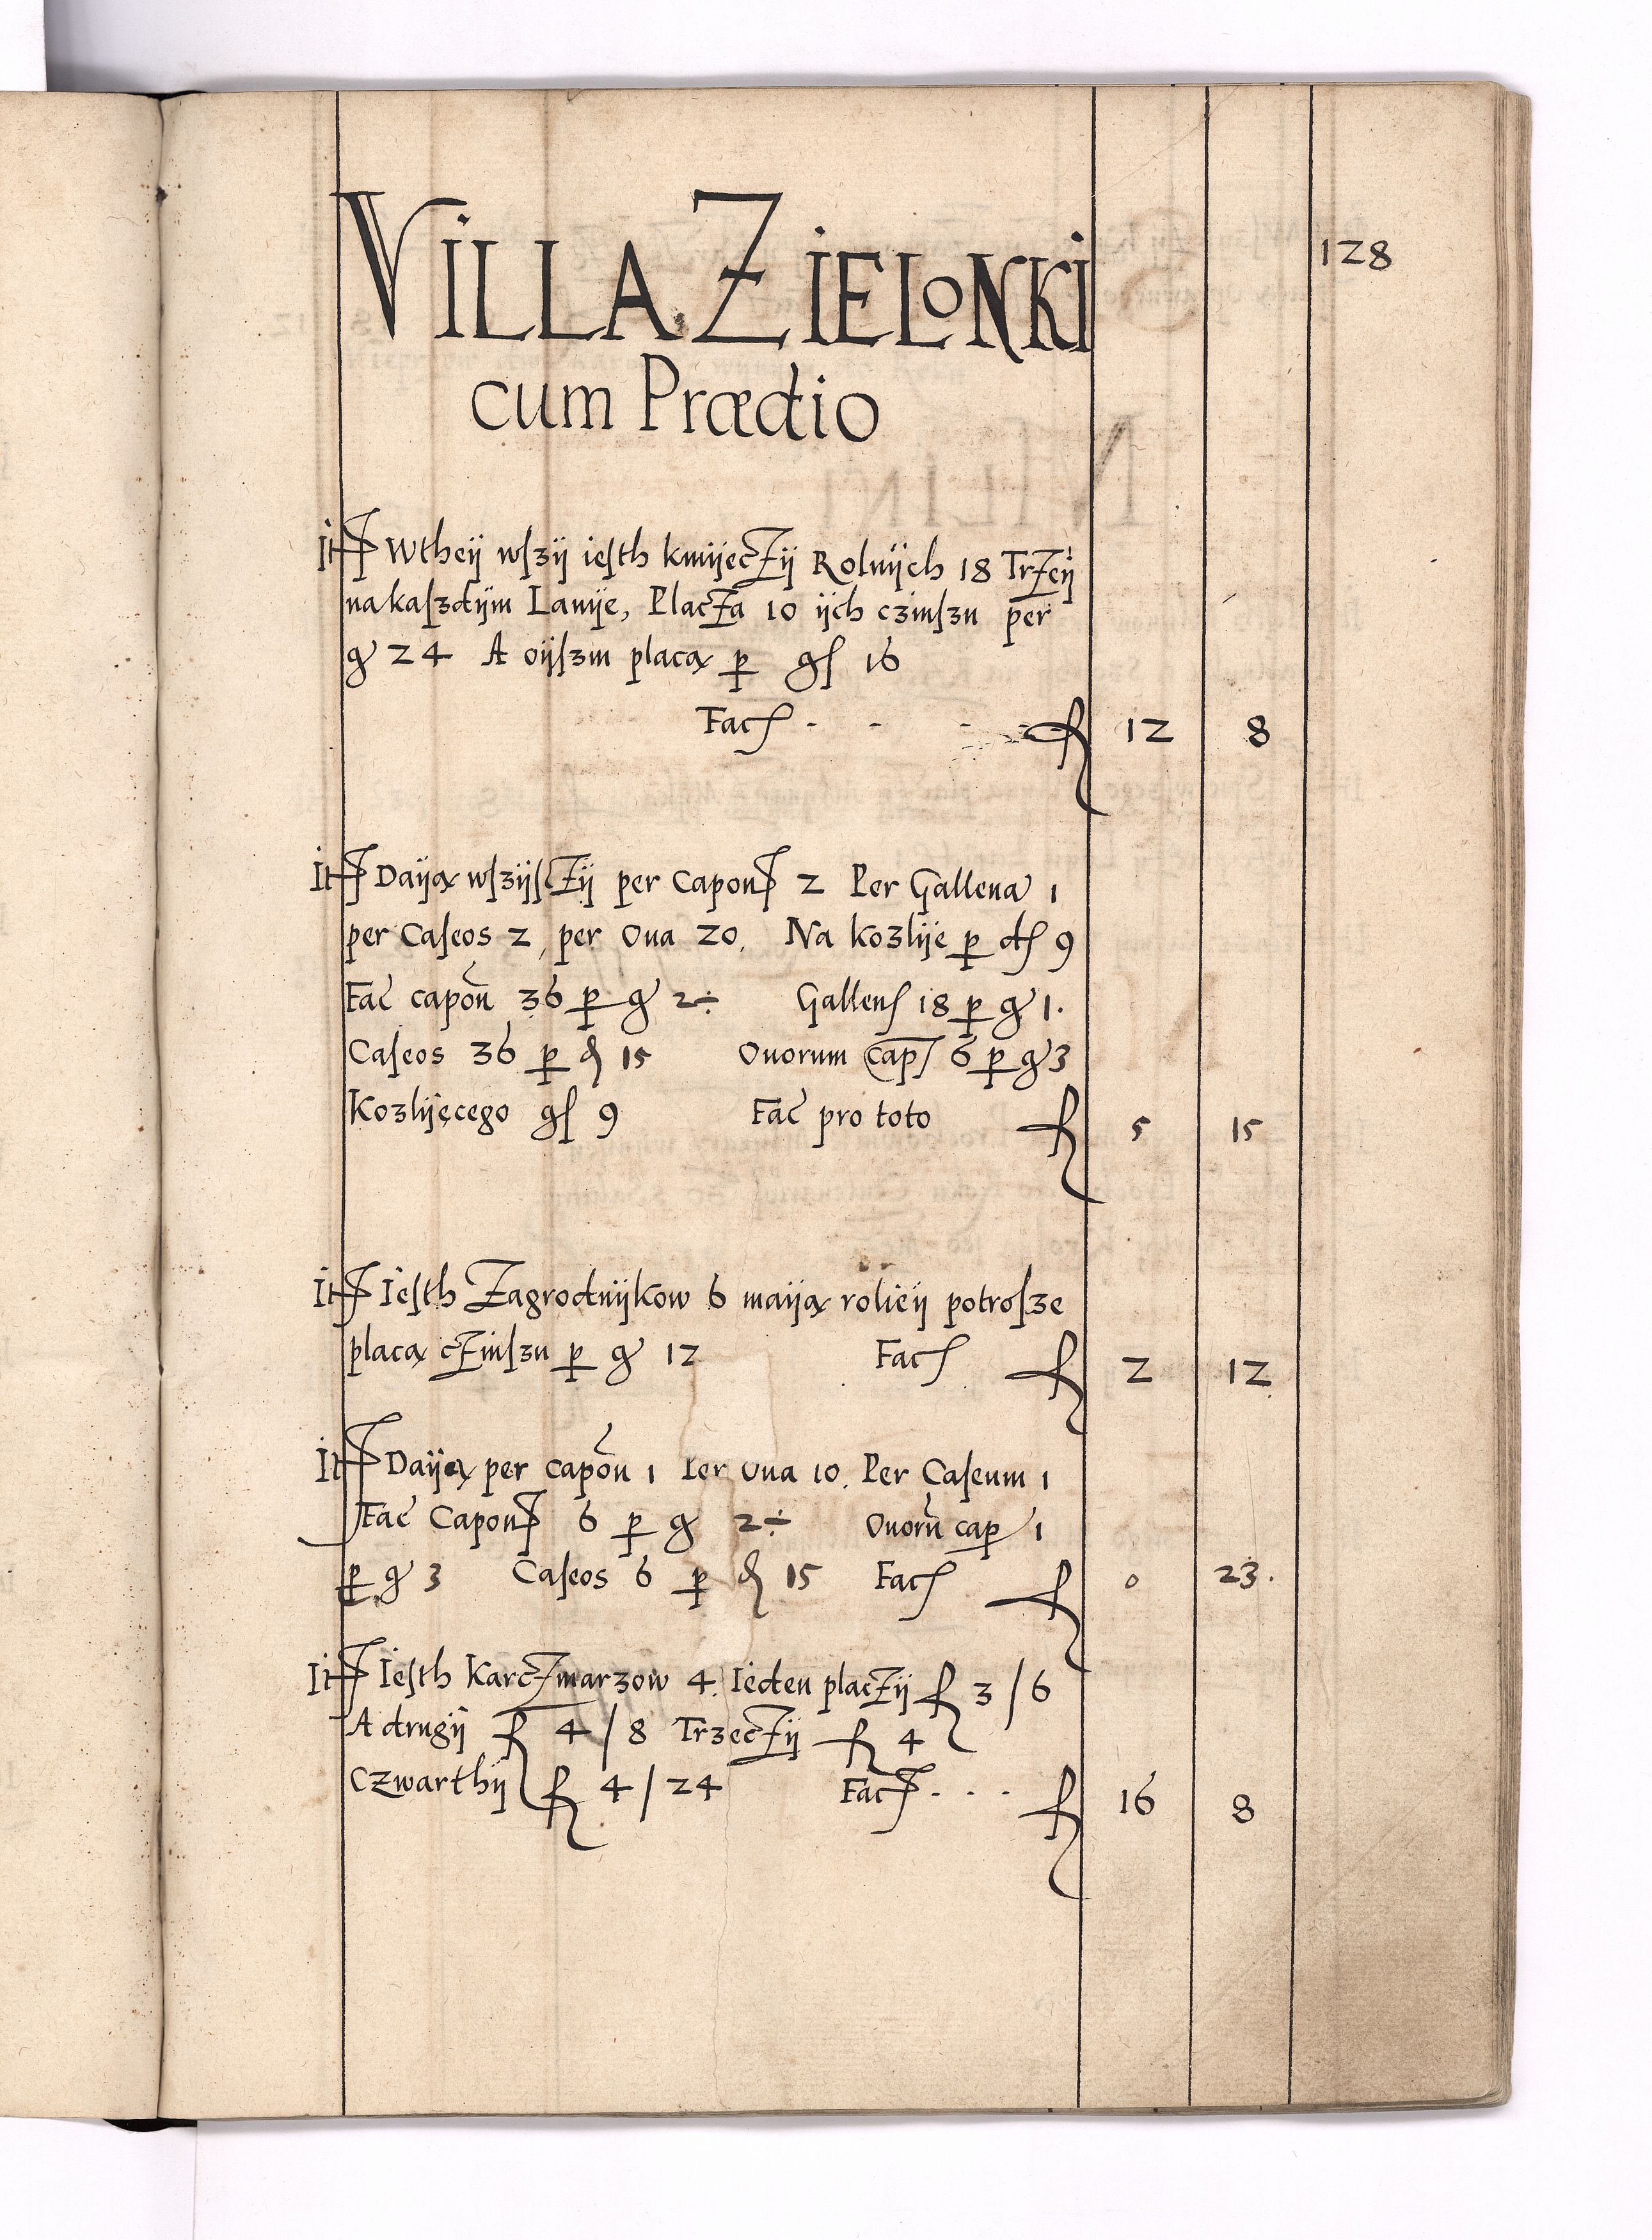 128
VILLA ZIELONKI
cum Prædio
Itē Wtheÿ wſzÿ ieſth kmÿeczÿ Rolnÿch 18 Trzeÿ
na kaſzdÿm Lanÿe, Placza 10 ÿch czinſzu per
gͬ 24 A oÿſzm placą p gſ 16
Facſ - - - fl 12 8
Itē Daÿą wſzÿſczÿ per Caponē 2 Per Gallena 1
per Caſeos 2, per Oua 20. Na kozlÿe p dſ 9
Fac̄ capōn 36 p gͬ 2÷ Gallenſ 18 p gͬ 1.
Caſeos 36 p ₰ 15 Ouorum capſ 6 p gͬ 3
Kozlÿęcego gſ 9 Fac̄ pro toto fl 5 15
Itē Ieſth Zagrodnÿkow 6 maÿą rolieÿ potroſze
placą czinſzu p gͬ 12 Facſ fl 2 12
Itē Daÿą per capōn 1 Per Oua 10. Per Caſeum 1
Fac̄ Caponē 6 p gͬ 2÷ Ouorū cap 1
p gͬ 3 Caſeos 6 p ₰ 15 Facſ fl 0 23.
Itē Ieſth Karczmarzow 4. Ieden placzÿ fl 3/6
A drugÿ fl 4/8 Trzeczÿ fl 4
Czwarthÿ fl 4/24 Facē . . . fl 16 8